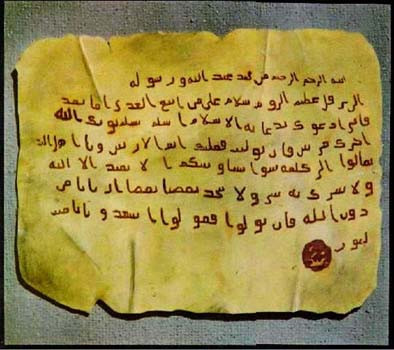 بسم الله الرحمن الرحيم من محمد عبد الله و رسوله
الى هرقل عظيم الروم سلام على من اتبع الهدى اما بعد
فانى ادعوك بدعاية الاسلام اسلم تسلم يوتك الله
اجرك مرتين فان توليت فعليك اثم الاريسين ويا اهل الكتاب
تعالوا الى كلمة سوا بيننا وبينكم الا نعبد الا الله
ولا نشرك به شيا ولا يتخذ بعضنا بعضا اربابا من
دون الله فان تولوا فقولوا اشهدوا بانا مس
لمون